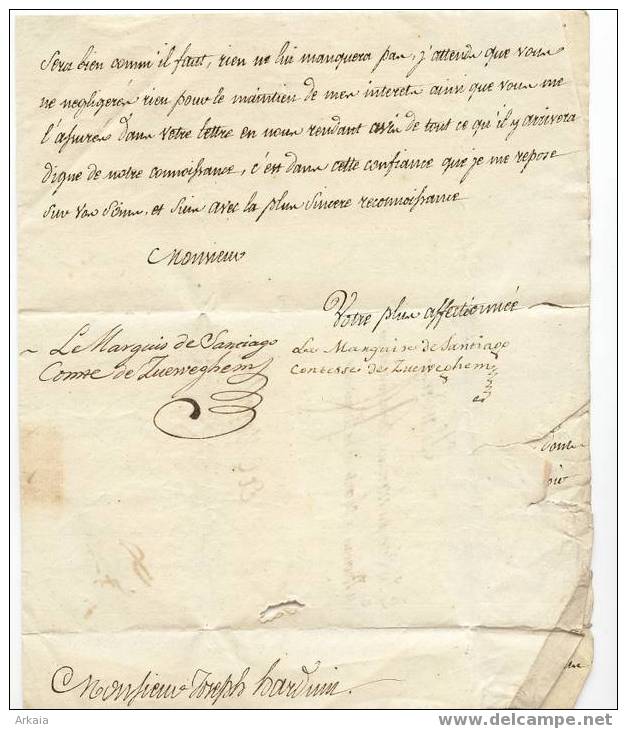 Sera bien comm il faut, rien ne lui manquera pas, j'attends que vous
ne negligerés rien pour le maintien de mes interets ainsi que vous me
l'assurés dans votre lettre en nous rendant avis de tout ce qu'il y arrivera
digne de notre connoissance, c'est dans cette confiance que je me repose
sur vos soins, et suis avec la plus sincere reconnoissance
Monsieur
Votre plus affectionnée
Le Marquis de Santiago
Comte de Zueweghem
La Marquise de Santiago
Contesse de Zueweghem
Monsieur Joseph harduin.
Arkaia
www.delcampe.net